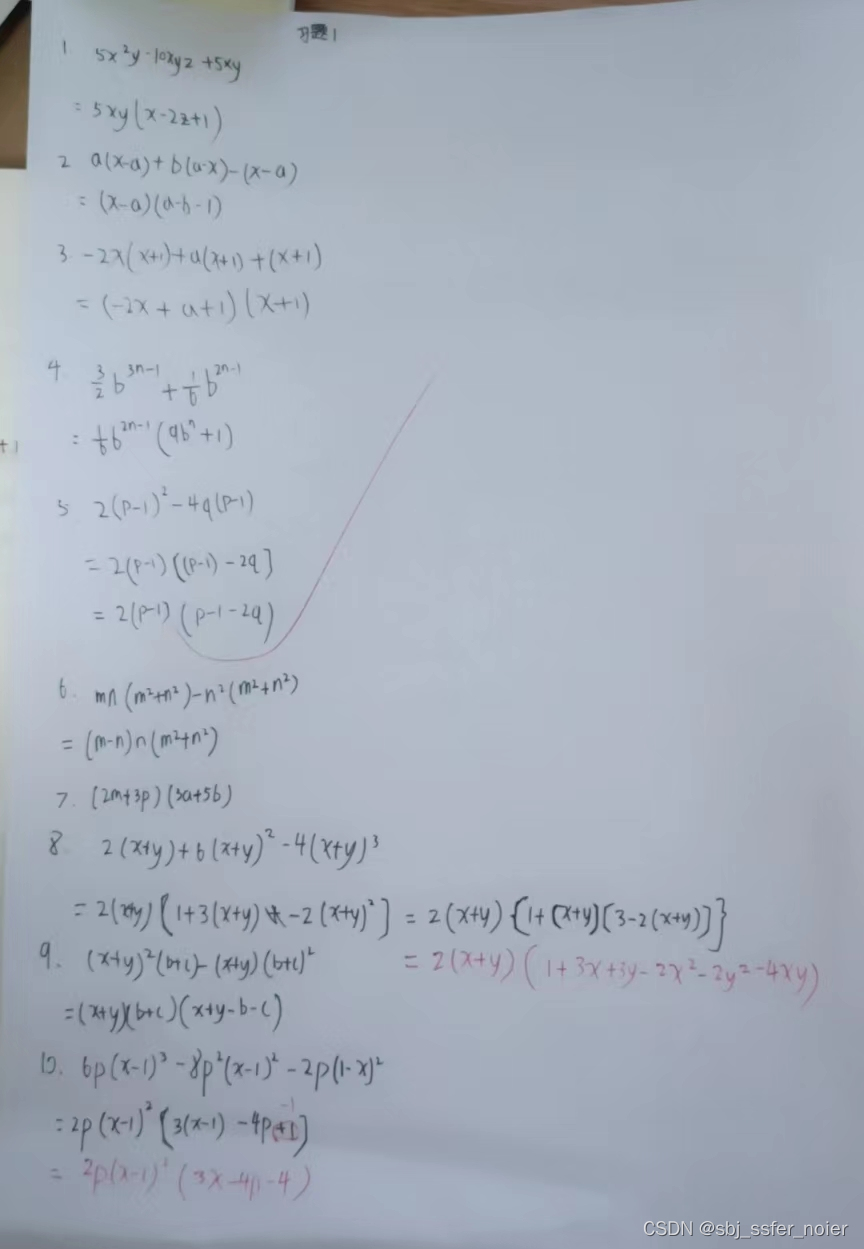 习题1
1 5x²y-10xyz+5xy
=5xy(x-2z+1)
2 a(x-a)+b(a-x)-(x-a)
=(x-a)(a-b-1)
3 -2x(x+1)+a(x+1)+(x+1)
=(-2x+a+1)(x+1)
4 3/2 b^(3n-1)+1/6 b^(2n-1)
=1/6 b^(2n-1)(9b^n+1)
5 2(p-1)²-4q(p-1)
=2(p-1)[(p-1)-2q]
=2(p-1)(p-1-2q)
6. mn(m²+n²)-n²(m²+n²)
=(m-n)n(m²+n²)
7. (2m+3p)(3a+5b)
8 2(x+y)+6(x+y)²-4(x+y)³
=2(x+y)[1+3(x+y)-2(x+y)²]=2(x+y){1+(x+y)[3-2(x+y)]}
=2(x+y)(1+3x+3y-2x²-2y²-4xy)
9. (x+y)²(b+c)-(x+y)(b+c)²
=(x+y)(b+c)(x+y-b-c)
10. 6p(x-1)³-8p²(x-1)²-2p(1-x)²
=2p(x-1)²[3(x-1)-4p+1]
-1
=2p(x-1)²(3x-4p-4)
+1
CSDN @sbj_ssfer_noier